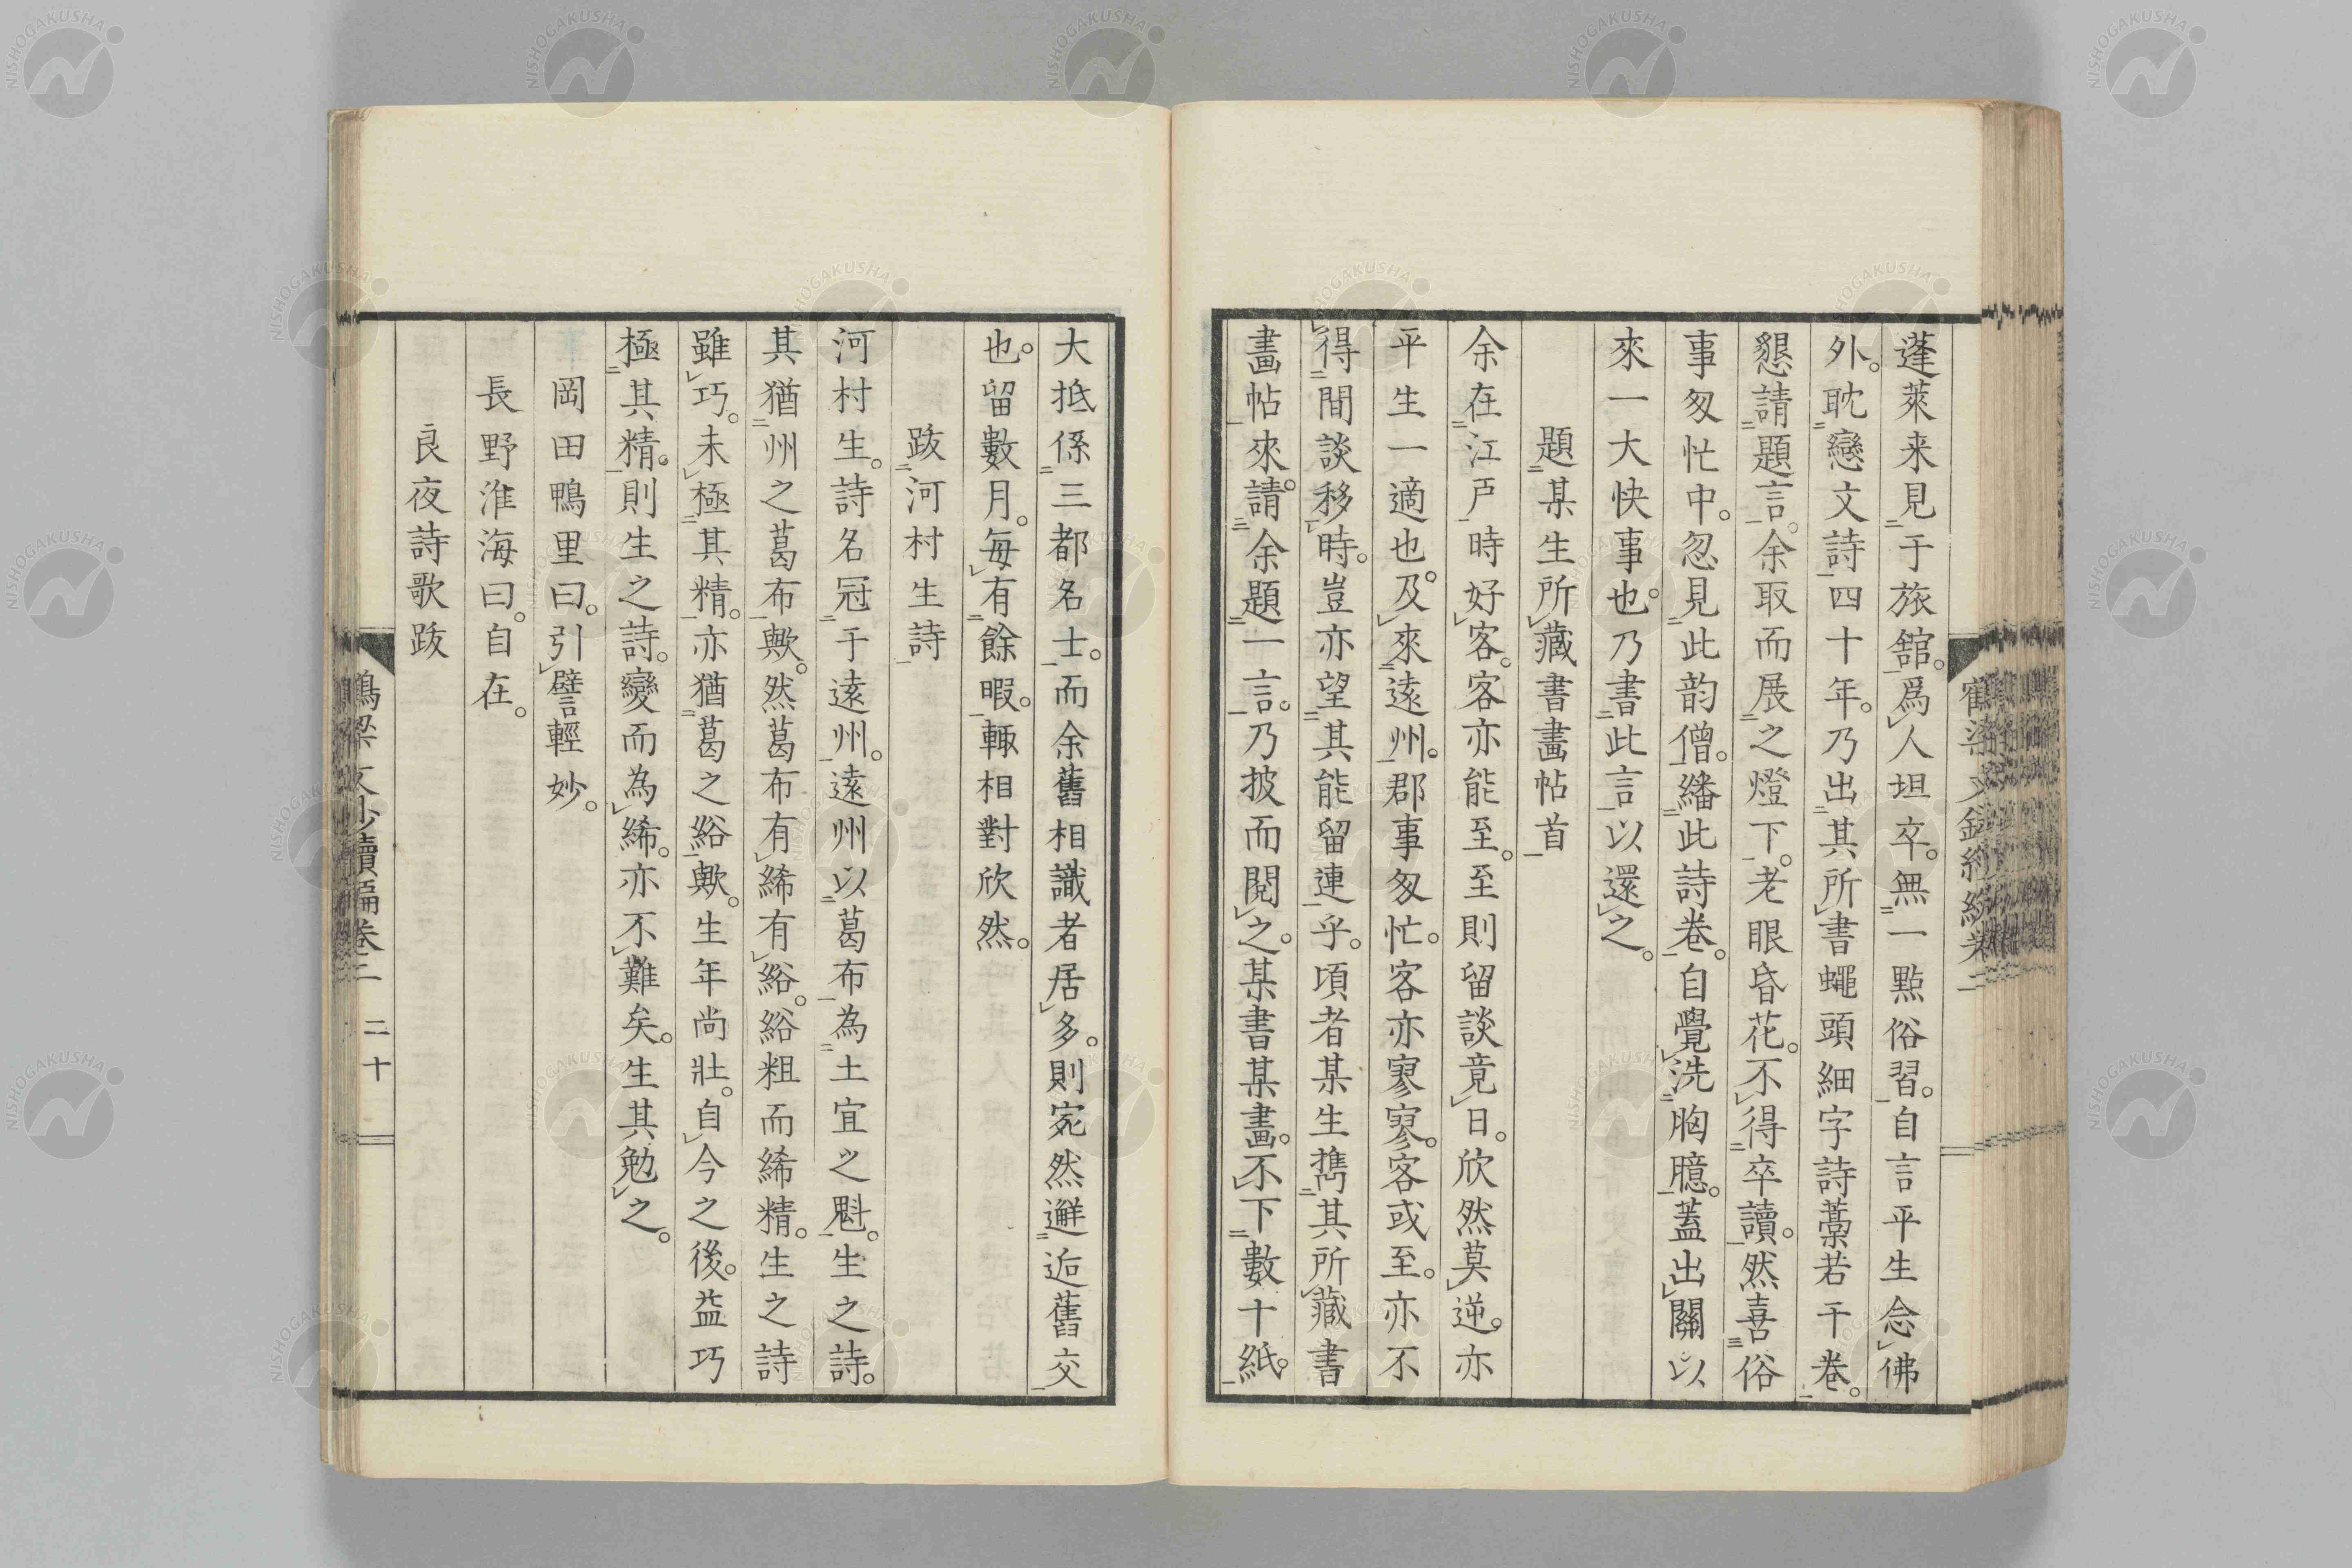 蓬萊来見于旅舘。爲人坦卒。無一點俗習。自言平生念佛
外。耽戀文詩四十年。乃出其所書蠅頭細字詩藁若干卷。
懇請題言。余取而展之燈下。老眼昏花。不得卒讀。然喜俗
事匆忙中。忽見此韵僧。繙此詩卷。自覺洗胸臆。蓋出關以
來一大快事也。乃書此言以還之。
題某生所藏書畫帖首
余在江戸時好客。客亦能至。至則留談竟日。欣然莫逆。亦
平生一適也。及來遠州。郡事匆忙。客亦寥寥。客或至。亦不
得間談移時。豈亦望其能留連乎。頃者某生携其所藏書
畫帖來。請余題一言。乃披而閱之。某書某畫。不下數十紙。
大抵係三都名士。而余舊相識者居多。則宛然邂逅舊交
也。留數月。每有餘暇。輙相對欣然。
跋河村生詩
河村生。詩名冠于遠州。遠州以葛布為土宜之魁。生之詩。
其猶州之葛布歟。然葛布有絺有綌。綌粗而絺精。生之詩
雖巧。未極其精。亦猶葛之綌歟。生年尚壯。自今之後。益巧
極其精。則生之詩。變而為絺。亦不難矣。生其勉之。
岡田鴨里曰。引譬輕妙。
長野淮海曰。自在。
良夜詩歌跋
鶴梁文鈔續編卷二 二十
NISHOGAKUSHA